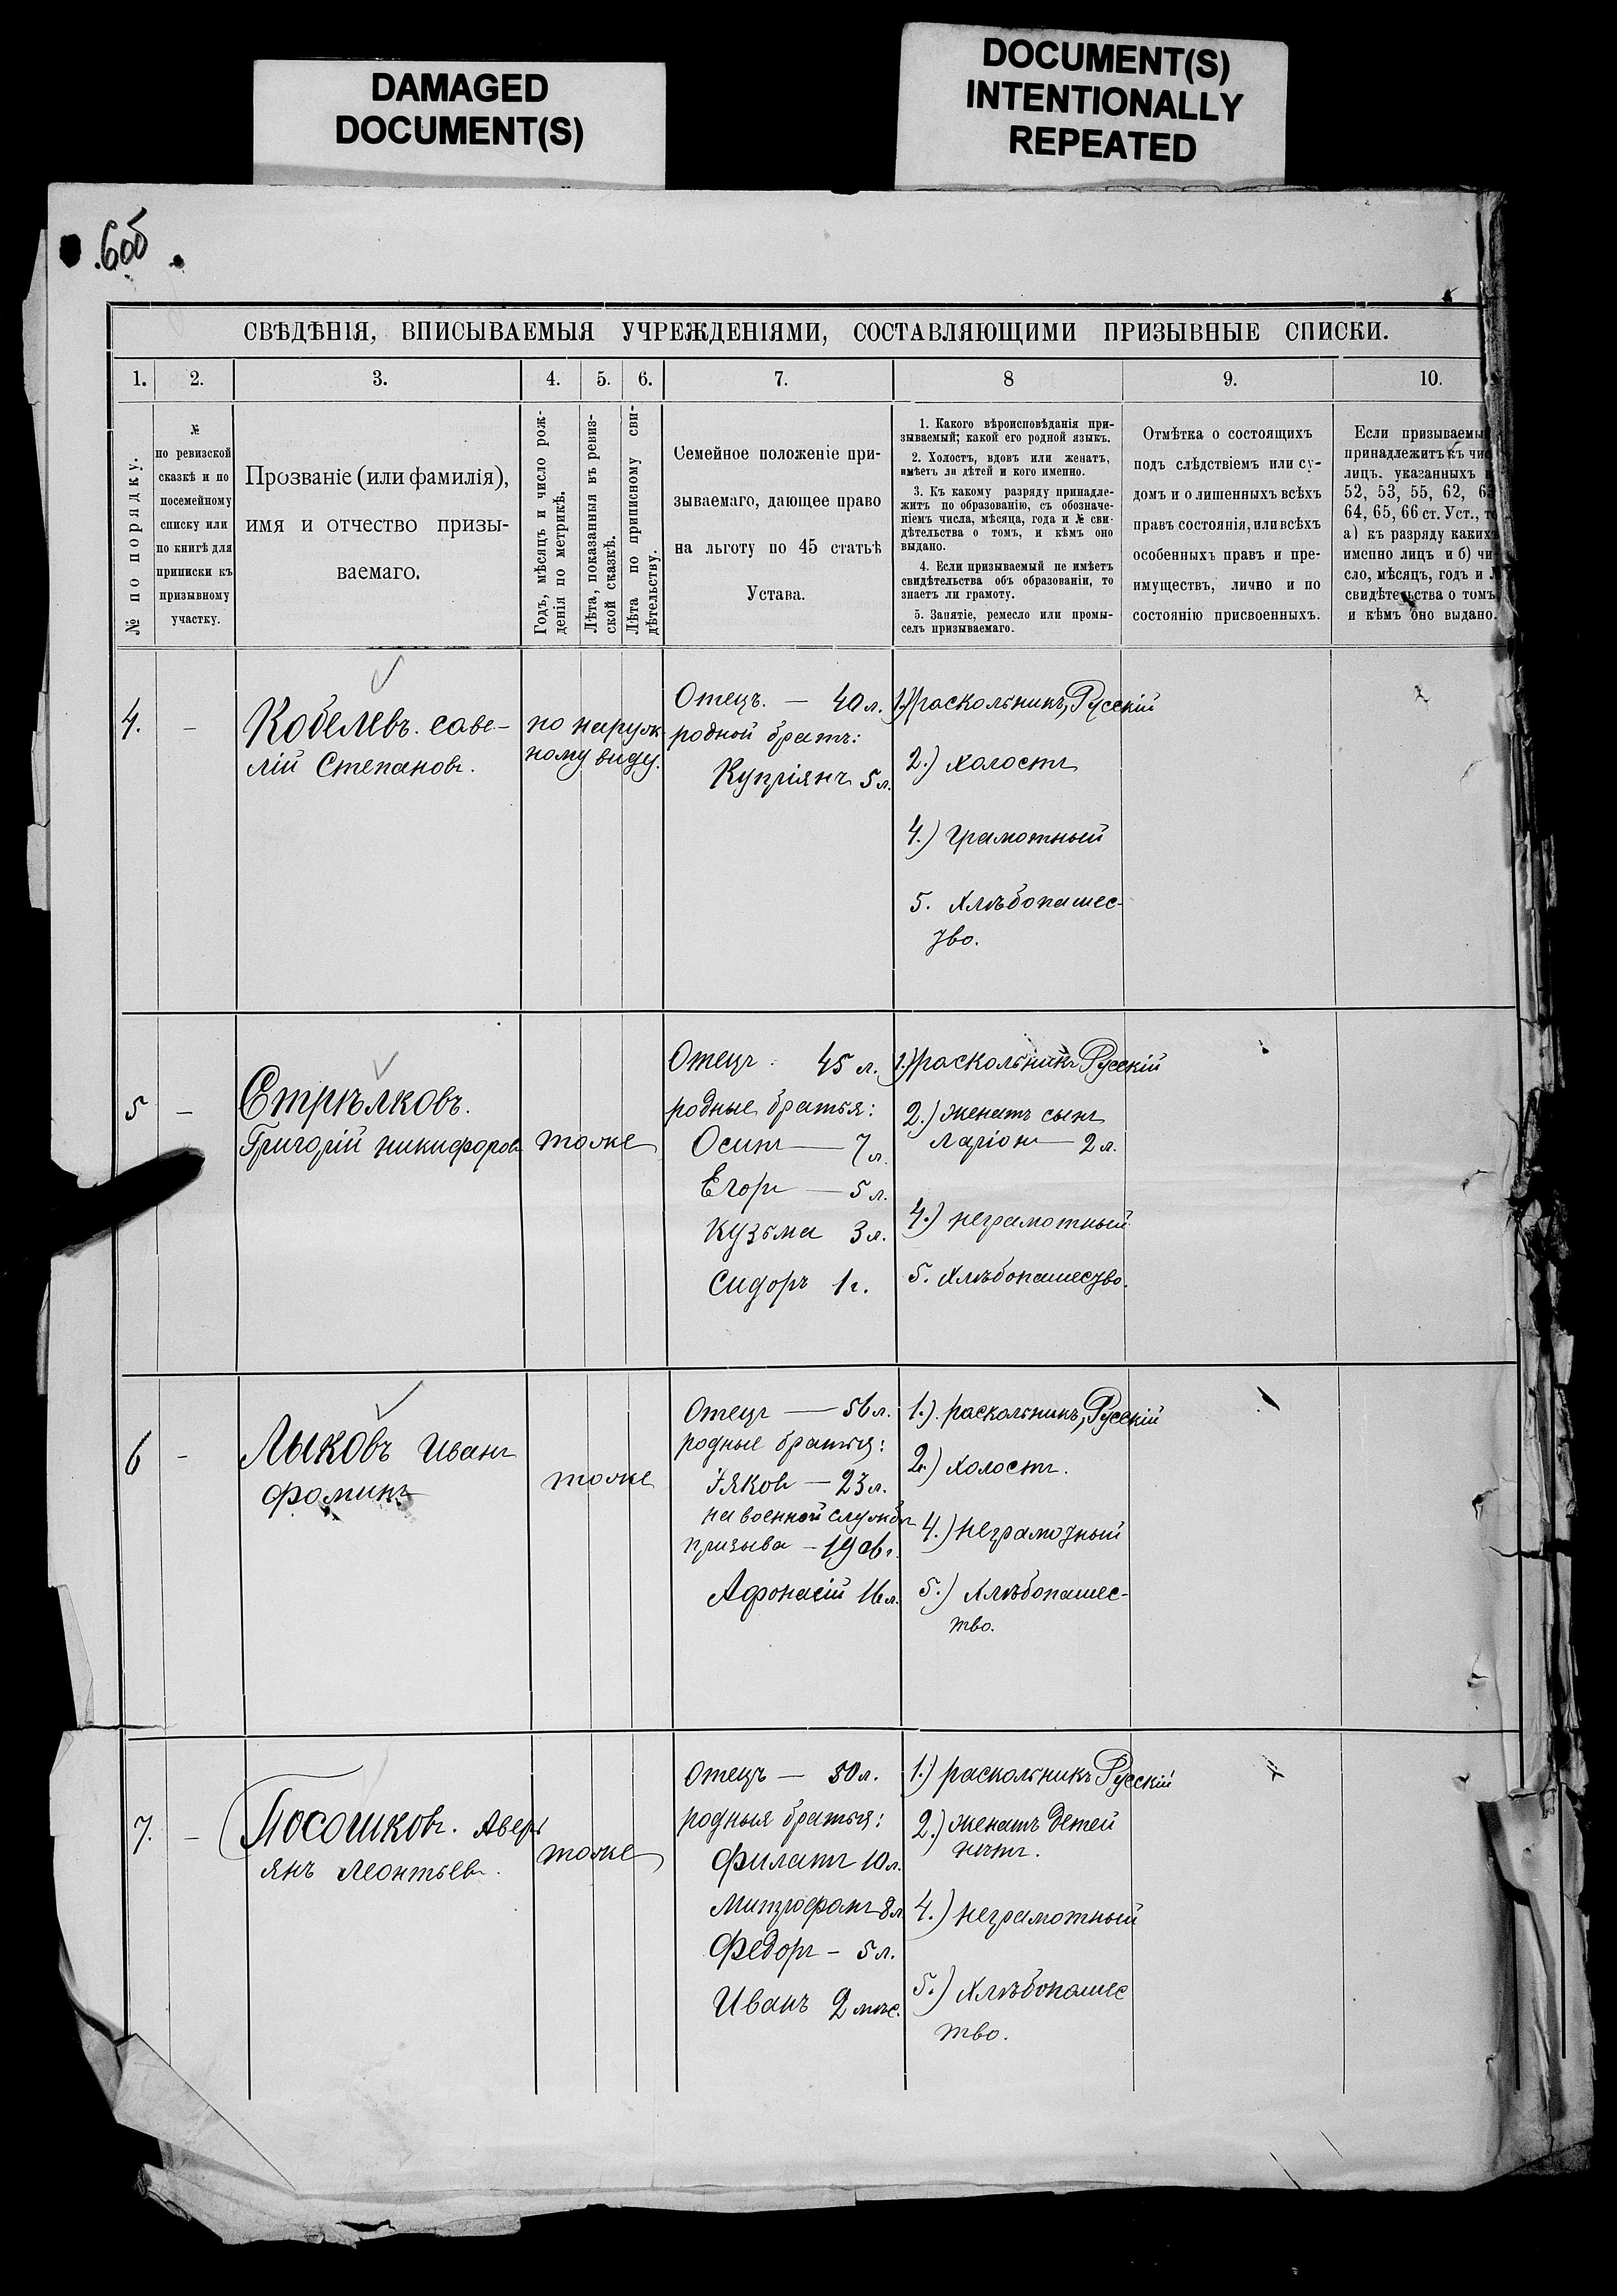 DAMAGED
DOCUMENT(S)
DOCUMENT(S)
INTENTIONALLY
REPEATED
6об
СВѢДѢНІЯ, ВПИСЫВАЕМЫЯ УЧРЕЖДЕНІЯМИ, СОСТАВЛЯЮЩИМИ ПРИЗЫВНЫЕ СПИСКИ.
1. 2. 3. 4. 5. 6. 7. 8 9. 10.
№ по порядку.
№
по ревизской
сказкѣ и по
посемейному
списку или
по книгѣ для
приписки къ
призывному
участку.
Прозваніе (или фамилія),
имя и отчество призы-
ваемаго.
Годъ, мѣсяцъ и число рож-
денія по метрикѣ.
Лѣта, показанныя въ ревиз-
ской сказкѣ.
Лѣта по приписному сви-
дѣтельству.
Семейное положеніе при-
зываемаго, дающее право
на льготу по 45 статьѣ
Устава.
1. Какого вѣроисповѣданія при-
зываемый; какой его родной языкъ.
2. Холостъ, вдовъ или женатъ,
имѣетъ ли дѣтей и кого именно.
3. Къ какому разряду принадле-
житъ по образованію, съ обозначе-
ніемъ числа, мѣсяца, года и № сви-
дѣтельства о томъ, и кѣмъ оно
выдано.
4. Если призываемый не имѣетъ
свидѣтельства объ образованіи, то
знаетъ ли грамоту.
5. Занятіе, ремесло или промы-
селъ призываемаго.
Отмѣтка о состоящихъ
подъ слѣдствіемъ или су-
домъ и о лишенныхъ всѣхъ
правъ состоянія, или всѣхъ
особенныхъ правъ и пре-
имуществъ, лично и по
состоянію присвоенныхъ.
Если призываемый
принадлежитъ къ чис
лицъ, указанныхъ
52, 53, 55, 62, 63
64, 65, 66 ст. Уст., то
а) къ разряду какихъ
именно лицъ и б) чи-
сло, мѣсяцъ, годъ и
свидѣтельства о томъ
и кѣмъ оно выдано.
4. —
Кобелевъ. Саве-
лій Степановъ.
по наруж
ному виду.
Отецъ. — 40 л.
родной братъ:
Купріянъ 5 л.
1.) раскольникъ, Русскій
2.) холостъ
4.) грамотный
5. Хлѣбопашес-
тво.
5 —
Стрѣлковъ.
Григорій Никифоровъ
тоже
Отецъ. 45 л.
родные братья:
Осипъ — 7 л.
Егоръ — 5 л.
Кузьма 3 л.
Сидоръ 1 г.
1.) раскольникъ Русскій
2.) женатъ сынъ
Ларіонъ — 2 л.
4.) неграмотный
5. Хлѣбопашество.
6 -
Лыковъ Иванъ
Фоминъ
тоже
Отецъ — 56 л.
родные братья:
Яковъ — 23 л.
на военной службѣ
призыва — 1906 г.
Афонасій 16 л.
1.). раскольникъ, Русскій
2.) холостъ.
4.) неграмотный
5.) Хлѣбопашес-
тво.
7. —
Посошковъ. Аверь
янъ Леонтьевъ.
тоже
Отецъ — 50 л.
родныя братья:
Филатъ 10 л.
Митрофанъ 8 л
Федоръ - 5 л.
Иванъ 2 мѣс.
1.) раскольникъ Русскій
2.) женатъ детей
нѣтъ.
4.) неграмотный
5.) Хлѣбопашес
тво.